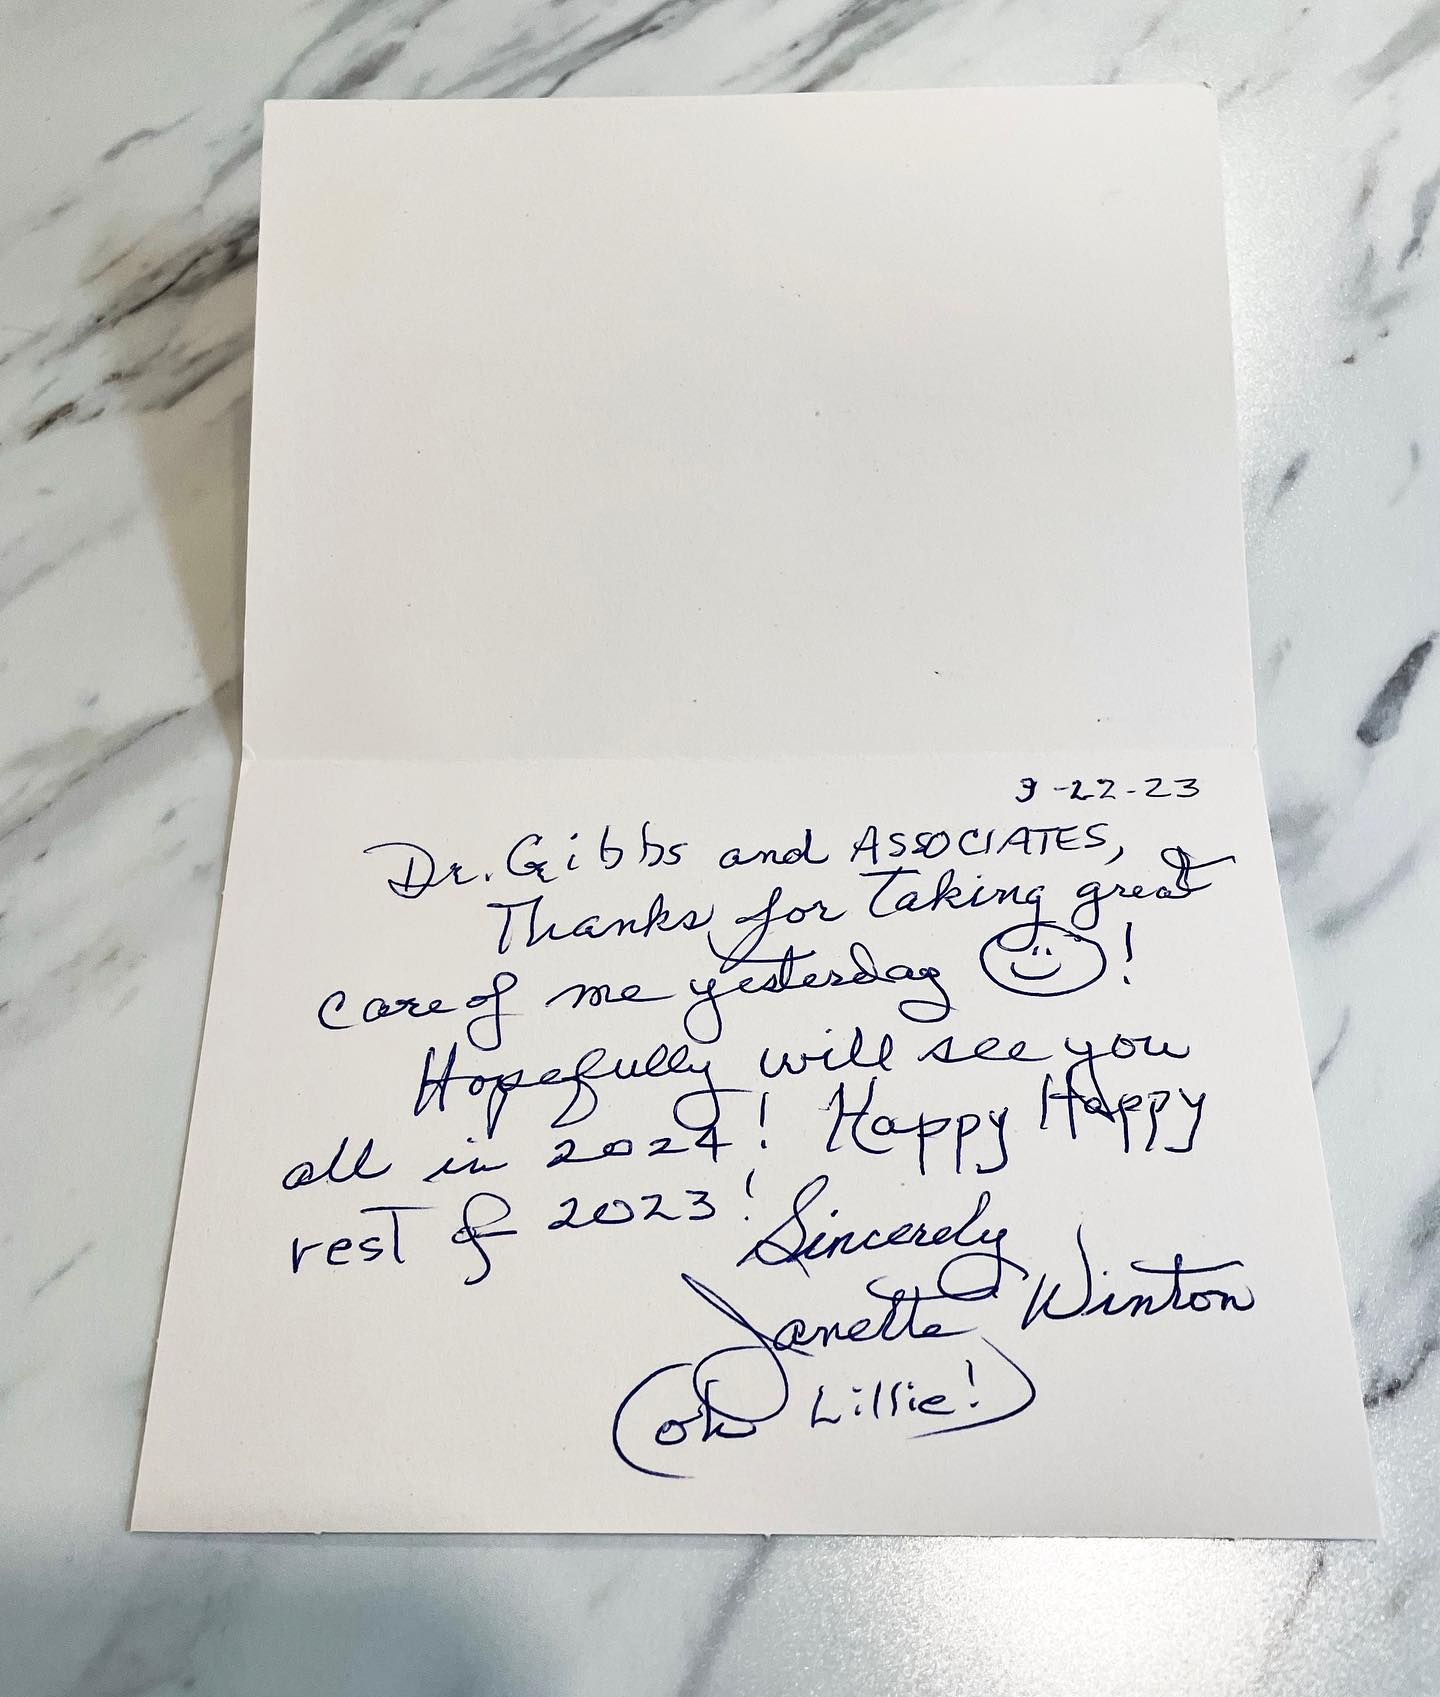 9-22-23
Dr. Gibbs and ASSOCIATES,
Thanks for taking great
care of me yesterday !
Hopefully will see you
all in 2024! Happy Happy
rest of 2023!
Sincerely
Janette Winton
(oh Lillie!)